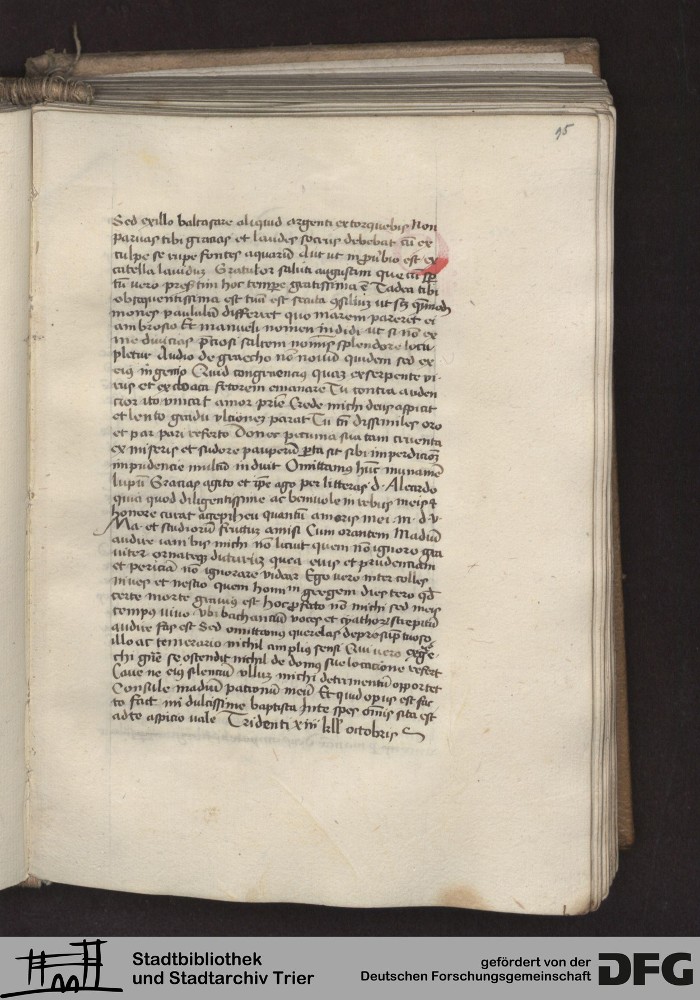 95
Sed exillo baltasare aliquid argenti extorquebis Non
paruas tibi gratias et laudes socrus debebat cū ex
culpe se rupe fontes aquarū Aut ut in ꝓūbio est ex
catella lauiduz Gratulor saluti augustam que cū
tū vero preſtim hoc tempe gratissima ē Tadea tibi
obsequentissima est tuū est secuta ꝯsiliuz ut scȝ
mones paululū differret quo marem pareret et
ambrosio Et manueli nomen indidi ut si nō ex
me diuicias p̄ciosi saltem nomīs splendore locu
pletur Audio de graecho nō nouū quidem sed ex
eius ingenio Quid congruencius quaȝ ex serpente vi
rus et ex cloaca fetorem emanare Tu contra auden
cior ito vincat amor prīe Crede michi deus aspiciat
et lento gradu vlciones parat Tu tn̄ dissimiles oro
et par pari referto Donec pecunia sua tam cruenta
ex miseris et sudore pauperū ꝑta sit sibi in perdicioē
impudencie multū induit Omittamȝ hūc
lupū Gracias agito et ipse ago per litteras d. Aleardo
quia quod diligentissime ac beniuole in rebus meis
honore curat accepi heu quantū amoris mei M. d. v
Ma. et studiorū fructuȝ amisi Cum orantem Madiū
audire iam bis michi nō licuit quem nō ignoro gra
uiter ornateqȝ dicturuȝ quia eius et prudentiam
et periciā nō ignorare videar Ego vero inter colles
niues et nescio quem homīm gregem dies tero qd̄
certe morte grauius est hoc ꝓfecto nō michi sed meis
tempus viuo vbi bachantiū voces et cyathorȝ strepitū
audire fas est Sed omittamus querelas de prosūptuoso
illo ac temerario nichil amplius sensi Qui vero
chi grīe se ostendit nichil de domȝ sue locacione refert
Caue ne eius silenciū vlluȝ michi detrimentū opportet
Consule madiū patronū meū Et quid opus est fac
to fiāt mi dulcissime baptista In te spes omīs sita est
ad te aspicio vale Tridenti xiiij kll̄ octobris
Stadtbibliothek
und Stadtarchiv Trier
gefördert von der
Deutschen Forschungsgemeinschaft
DFG